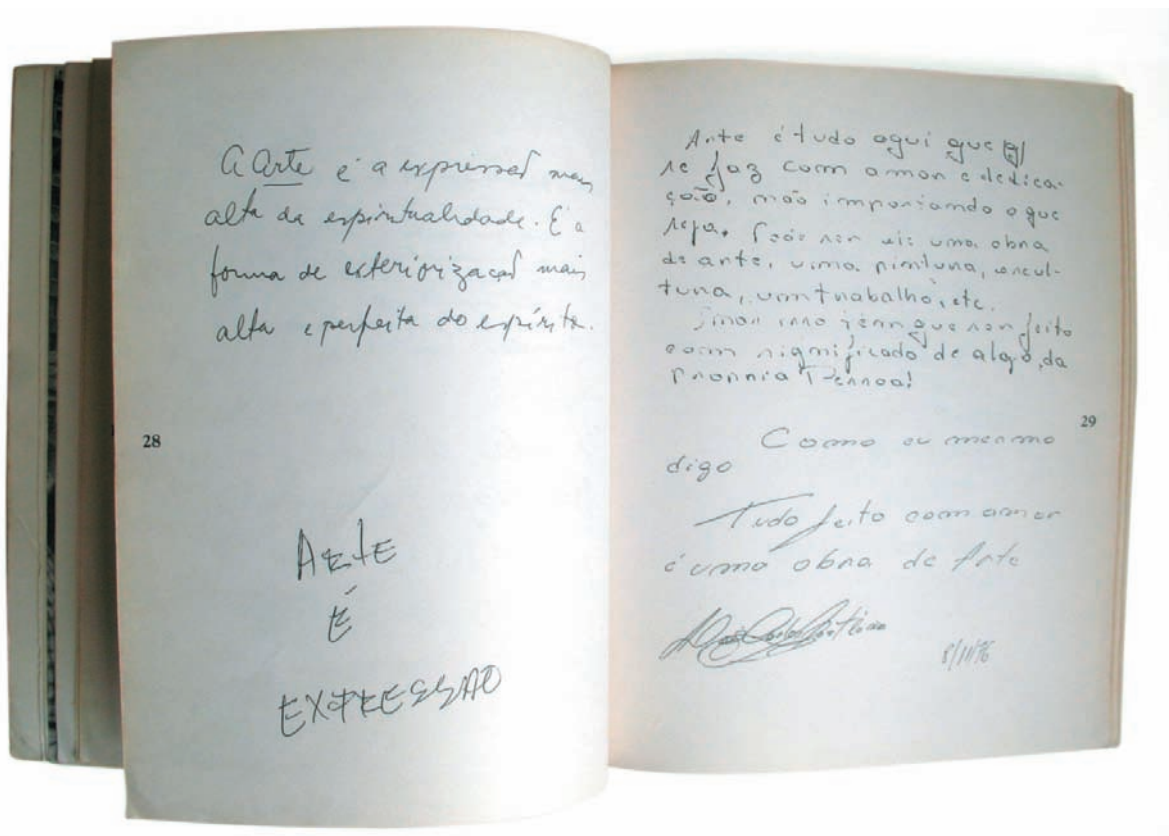 A Arte é a expressão mais
alta da espiritualidade. É a
forma de exteriorização mais
alta e perfeita do espírito.
28
ARTE
É
EXPRESSÃO
Arte é tudo aqui que
se faz com amor e dedica-
ção, não importando o que
seja. Pode ser uma obra
de arte, uma pintura, escul-
tura, um trabalho, etc.
isso tem que ser feito
com significado de algo, da
Propria Pessoa!
29
Como eu mesmo
digo
Tudo feito com amor
é uma obra de Arte
8/11/76